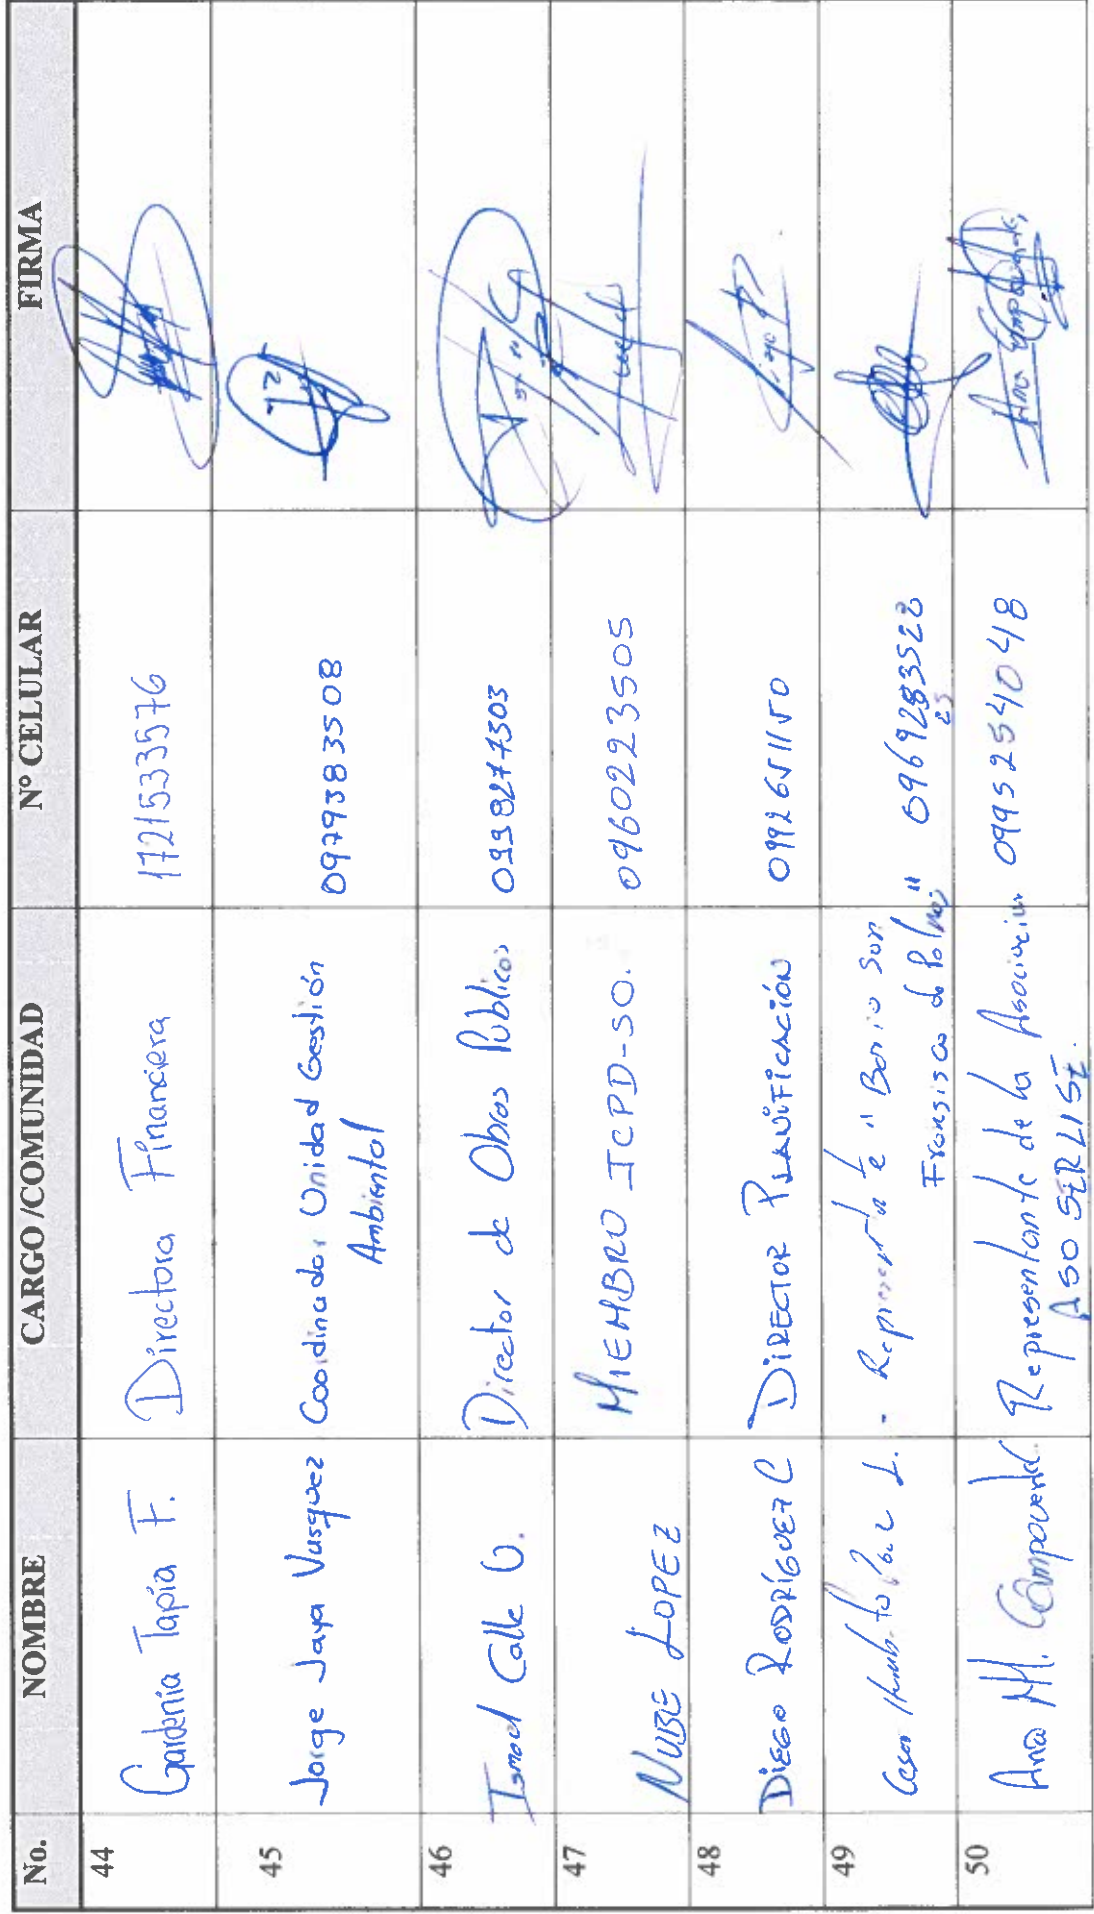 No. NOMBRE CARGO /COMUNIDAD N° CELULAR FIRMA
44 Gardenia Tapia F. Directora Financiera 1721533576
45 Jorge Jaya Vasquez Coordinador Unidad Gestión 0979383508
Ambiental
46 Ismael Calle G. Director de Obras Publicas 0998277303
47 NUBE LOPEZ MIEMBRO ICPD-SO. 0960223505
48 DIEGO RODRÍGUEZ C DIRECTOR PLANIFICACIÓN 0992651150
49 Cesar Humberto L. - Representante "Barrio San
Fransisco de Palmas"
50 Ana M. Campoverde Representante de la Asociacion 0995254048
ASOSERLISE.